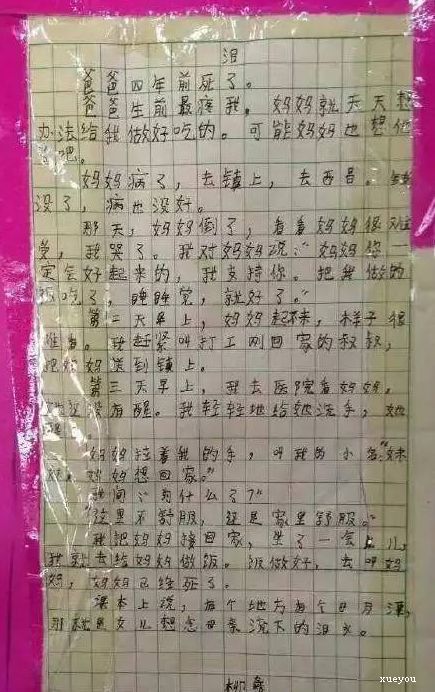 泪
爸爸四年前死了。
爸爸生前最疼我。妈妈就天天想
办法给我做好吃的。可能妈妈也想他
了吧。
妈妈病了,去镇上,去西昌。钱
没了,病也没好。
那天,妈妈倒了,看着妈妈很难
受,我哭了。我对妈妈说:“妈妈你一
定会好起来的,我支持你。把我做的
饭吃了,睡睡觉,就好了。”
第二天早上,妈妈起不来,样子很
难看。我赶紧叫打工刚回家的叔叔,
把妈妈送到镇上。
第三天早上,我去医院看妈妈,
她还没有醒。我轻轻地给她洗手,她
醒了。
妈妈拉着我的手,叫我的小名:“妹
妹,妈妈想回家。”
我问:“为什么了?”
“这里不舒服,还是家里舒服。”
我把妈妈接回家,坐了一会儿,
我就去给妈妈做饭。饭做好,去叫妈
妈,妈妈已经死了。
课本上说,有个地方有个日月潭,
那就是女儿想念母亲流下的泪水。
xueyou